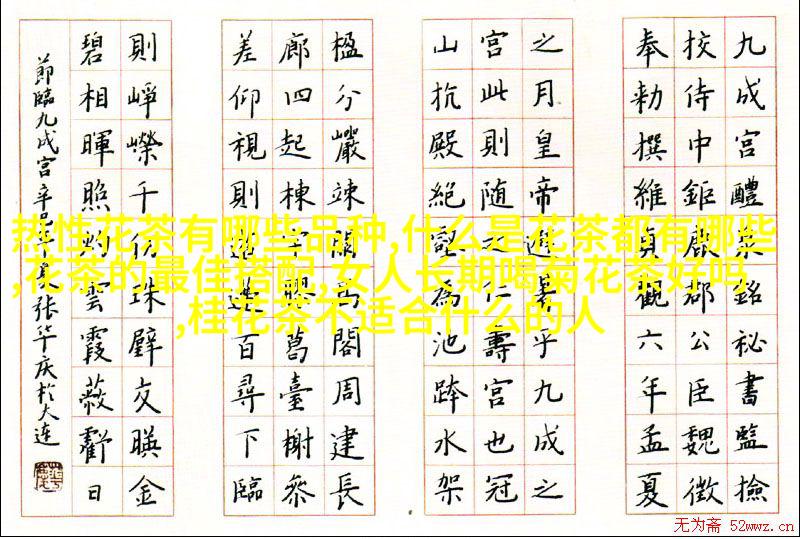 九成宫醴泉銘秘書監撿
挍侍中鉅鹿郡公臣魏徵
奉勅撰維貞觀六年孟夏
之月皇帝避暑乎九成之
宫此則随之仁壽宫也冠
山抗殿絶壑為池跨水架
楹分巖竦闕高閣周建長
廊四起棟宇膠葛臺榭叅
差仰視則迢遰百尋下臨
則峥嶸千仞珠璧交暎金
碧相暉照灼雲霞蔽虧日
節臨九成宫辛巳年夏張华庆於大連
热性花茶有哪些品种,什么是花茶都有哪些
,花茶的最佳搭配,女人长期喝菊花茶好吗
,桂花茶不适合什么的人
无为斋 52wwz.cn